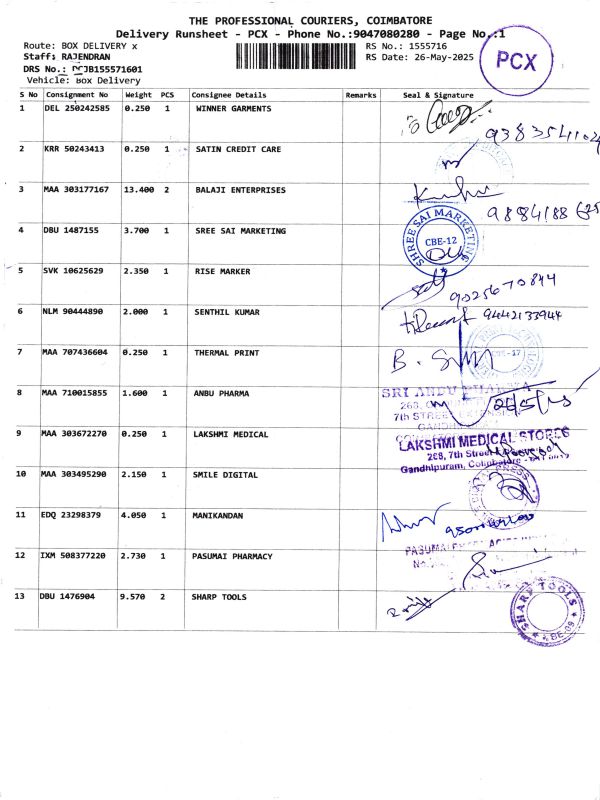 THE PROFESSIONAL COURIERS, COIMBATORE
Delivery Runsheet - PCX - Phone No.:9047080280 - Page No.:1
Route: BOX DELIVERY x
RS No.: 1555716
Staff: RAJENDRAN
RS Date: 26-May-2025
PCX
DRS No.: JB155571601
Vehicle: Box Delivery
S No Consignment No Weight PCS Consignee Details Remarks Seal & Signature
1 DEL 250242585 0.250 1 WINNER GARMENTS
2 KRR 50243413 0.250 1 SATIN CREDIT CARE
3 MAA 303177167 13.400 2 BALAJI ENTERPRISES
4 DBU 1487155 3.700 1 SREE SAI MARKETING
SHREE SAI MARKETING
CBE-12
5 SVK 10625629 2.350 1 RISE MARKER
9025670844
6 NLM 90444890 2.000 1 SENTHIL KUMAR
9442133944
7 MAA 707436604 0.250 1 THERMAL PRINT
8 MAA 710015855 1.600 1 ANBU PHARMA
SRI ANBU PHARMA
7th STREET
9 MAA 303672270 0.250 1 LAKSHMI MEDICAL
LAKSHMI MEDICAL STORES
268, 7th Street
Gandhipuram, Coimbatore
10 MAA 303495290 2.150 1 SMILE DIGITAL
11 EDQ 23298379 4.050 1 MANIKANDAN
12 IXM 508377220 2.730 1 PASUMAI PHARMACY
13 DBU 1476904 9.570 2 SHARP TOOLS
SHARP TOOLS